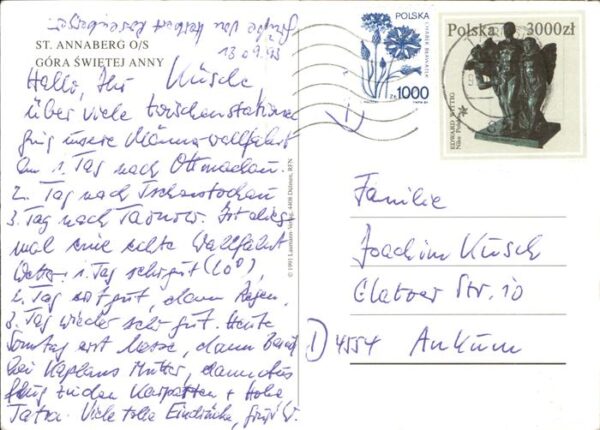 Grüße von Herbert
13.09.93
ST. ANNABERG O/S
GÓRA ŚWIĘTEJ ANNY
Hallo, Ihr Küsche
über viele Zwischenstationen
ging unsere Männerwallfahrt
am 1. Tag nach Ottmachau.
2. Tag nach Tschenstochau
3. Tag nach Tarnow. Ist dies-
mal eine echte Wallfahrt
Wetter: 1. Tag sehr gut (20°),
2. Tag erst gut, dann Regen,
3. Tag wieder sehr gut. Heute
Sonntag erst Messe, dann
bei Kaplans Mutter, dann Aus
flug zu den Karpatten + Hohe
Tatra. Viele tolle Eindrücke,
© 1991 Laumann-Verlag, 4408 Dülmen, RFN
POLSKA
CHABER BŁAWATEK
Zł 1000
Polska 3000zł
EDWARD WITTIG
Nike Polska
Familie
Joachim Küsch
Glatzer Str. 10
D 4554 Ankum